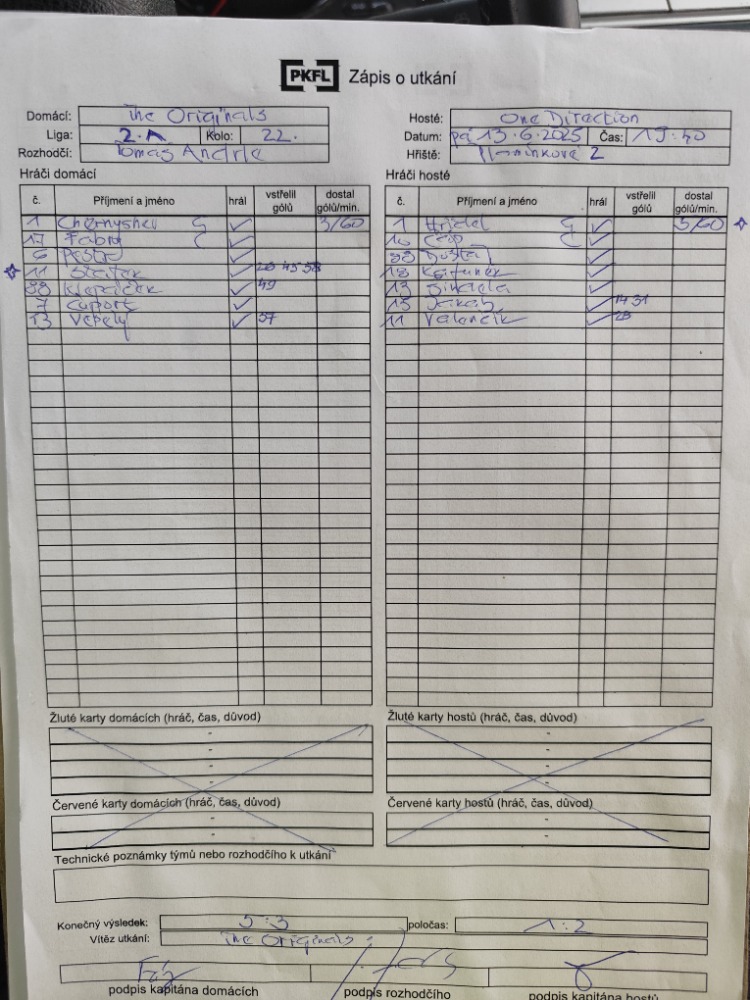 PKFL Zápis o utkání
Domácí: The Originals
Hosté: One Direction
Liga: 2.A Kolo: 22.
Datum: pá 13.6.2025 Čas: 19:40
Rozhodčí: Tomáš Andrle
Hřiště: 2
Hráči domácí
Hráči hosté
č. Příjmení a jméno hrál vstřelil gólů dostal gólů/min.
č. Příjmení a jméno hrál vstřelil gólů dostal gólů/min.
1 Chernyshev G ✓ 3/60
1 G ✓ 5/60
17 Fábry C ✓
16 Čáp C ✓
6 ✓
88 Dostál ✓
11 ✓ 45 58
18 ✓
88 Klepáček ✓ 49
13 ✓
7 ✓
15 ✓ 14 31
13 Veselý ✓ 57
11 Valenčík ✓
Žluté karty domácích (hráč, čas, důvod)
Žluté karty hostů (hráč, čas, důvod)
Červené karty domácích (hráč, čas, důvod)
Červené karty hostů (hráč, čas, důvod)
Technické poznámky týmů nebo rozhodčího k utkání
Konečný výsledek: 5:3 poločas: 1:2
Vítěz utkání: The Originals
podpis kapitána domácích podpis rozhodčího podpis kapitána hostů